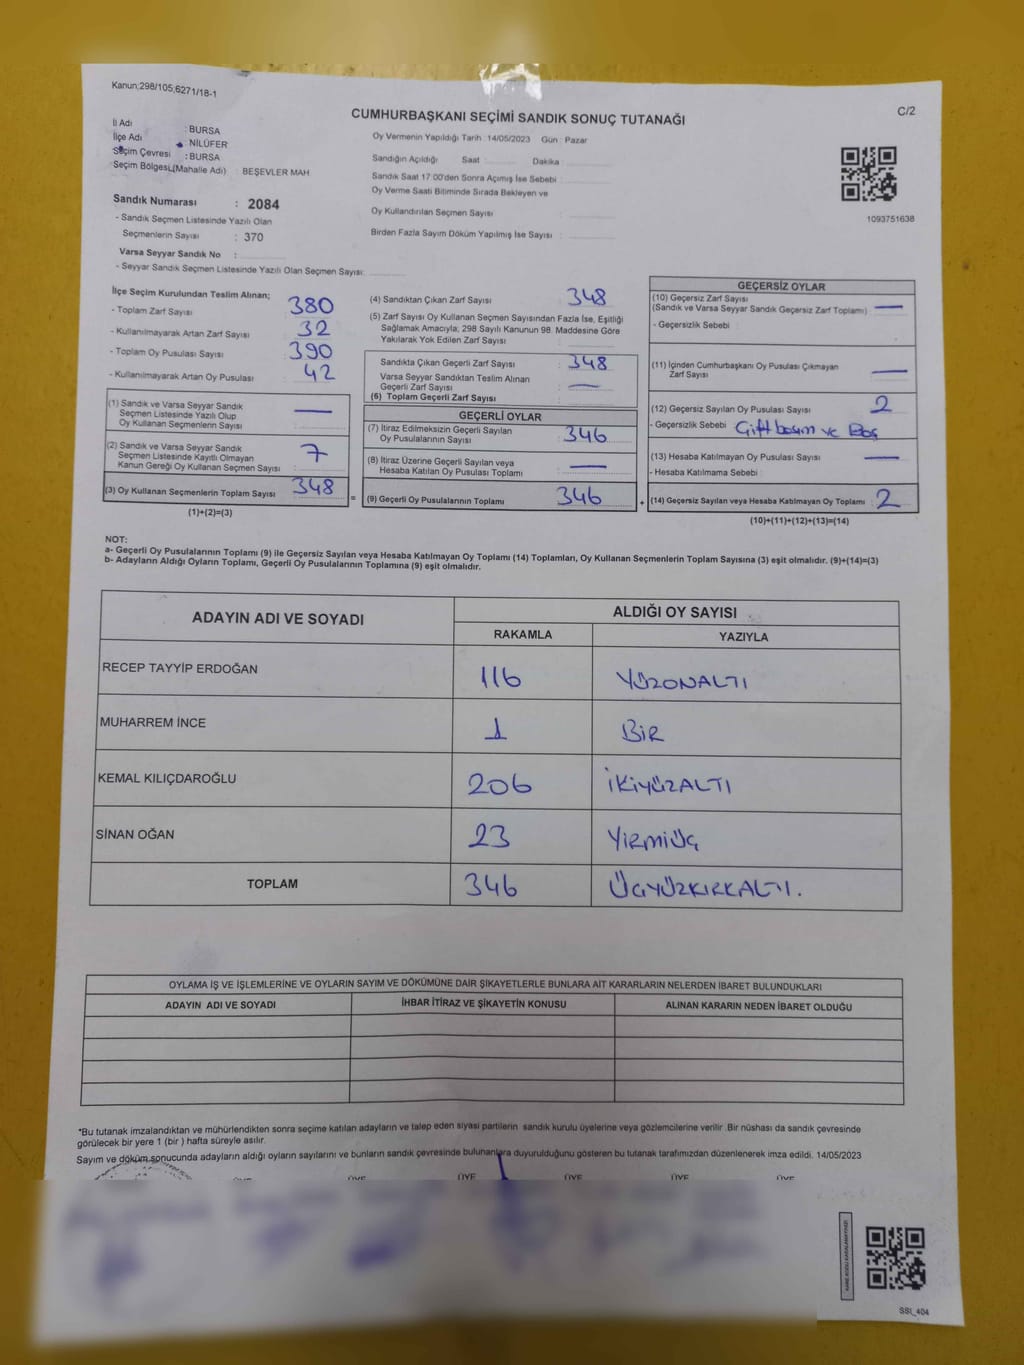 Kanun;298/105;6271/18-1
C/2
CUMHURBAŞKANI SEÇİMİ SANDIK SONUÇ TUTANAĞI
İl Adı : BURSA
İlçe Adı : NİLÜFER
Seçim Çevresi : BURSA
Seçim Bölgesi,(Mahalle Adı) BEŞEVLER MAH
Oy Vermenin Yapıldığı Tarih : 14/05/2023 Gün : Pazar
Sandığın Açıldığı Saat Dakika
Sandık Saat 17:00'den Sonra Açımış İse Sebebi :
Oy Verme Saati Bitiminde Sırada Bekleyen ve
Oy Kullandırılan Seçmen Sayısı :
Birden Fazla Sayım Döküm Yapılmış İse Sayısı :
1093751638
Sandık Numarası : 2084
- Sandık Seçmen Listesinde Yazılı Olan
Seçmenlerin Sayısı : 370
Varsa Seyyar Sandık No :
- Seyyar Sandık Seçmen Listesinde Yazılı Olan Seçmen Sayısı:
İlçe Seçim Kurulundan Teslim Alınan;
- Toplam Zarf Sayısı : 380
- Kullanılmayarak Artan Zarf Sayısı : 32
- Toplam Oy Pusulası Sayısı : 390
- Kullanılmayarak Artan Oy Pusulası : 42
(1) Sandık ve Varsa Seyyar Sandık
Seçmen Listesinde Yazılı Olup
Oy Kullanan Seçmenlerin Sayısı : —
(2) Sandık ve Varsa Seyyar Sandık
Seçmen Listesinde Kayıtlı Olmayan
Kanun Gereği Oy Kullanan Seçmen Sayısı : 7
(3) Oy Kullanan Seçmenlerin Toplam Sayısı : 348 =
(1)+(2)=(3)
(4) Sandıktan Çıkan Zarf Sayısı : 348
(5) Zarf Sayısı Oy Kullanan Seçmen Sayısından Fazla İse, Eşitliği
Sağlamak Amacıyla, 298 Sayılı Kanunun 98. Maddesine Göre
Yakılarak Yok Edilen Zarf Sayısı :
Sandıkta Çıkan Geçerli Zarf Sayısı : 348
Varsa Seyyar Sandıktan Teslim Alınan
Geçerli Zarf Sayısı : —
(6) Toplam Geçerli Zarf Sayısı :
GEÇERLİ OYLAR
(7) İtiraz Edilmeksizin Geçerli Sayılan
Oy Pusulalarının Sayısı : 346
(8) İtiraz Üzerine Geçerli Sayılan veya
Hesaba Katılan Oy Pusulası Toplamı : —
(9) Geçerli Oy Pusulalarının Toplamı : 346 +
GEÇERSİZ OYLAR
(10) Geçersiz Zarf Sayısı
(Sandık ve Varsa Seyyar Sandık Geçersiz Zarf Toplamı) : —
- Geçersizlik Sebebi :
(11) İçinden Cumhurbaşkanı Oy Pusulası Çıkmayan
Zarf Sayısı : —
(12) Geçersiz Sayılan Oy Pusulası Sayısı : 2
- Geçersizlik Sebebi : Çift basım ve Boş
(13) Hesaba Katılmayan Oy Pusulası Sayısı : —
- Hesaba Katılmama Sebebi :
(14) Geçersiz Sayılan veya Hesaba Katılmayan Oy Toplamı : 2
(10)+(11)+(12)+(13)=(14)
NOT:
a- Geçerli Oy Pusulalarının Toplamı (9) ile Geçersiz Sayılan veya Hesaba Katılmayan Oy Toplamı (14) Toplamları, Oy Kullanan Seçmenlerin Toplam Sayısına (3) eşit olmalıdır. (9)+(14)=(3)
b- Adayların Aldığı Oyların Toplamı, Geçerli Oy Pusulalarının Toplamına (9) eşit olmalıdır.
ADAYIN ADI VE SOYADI
ALDIĞI OY SAYISI
RAKAMLA YAZIYLA
RECEP TAYYİP ERDOĞAN 116 YÜZONALTI
MUHARREM İNCE 1 BİR
KEMAL KILIÇDAROĞLU 206 İKİYÜZALTI
SİNAN OĞAN 23 YİRMİÜÇ
TOPLAM 346 ÜÇYÜZKIRKALTI.
OYLAMA İŞ VE İŞLEMLERİNE VE OYLARIN SAYIM VE DÖKÜMÜNE DAİR ŞİKAYETLERLE BUNLARA AİT KARARLARIN NELERDEN İBARET BULUNDUKLARI
ADAYIN ADI VE SOYADI İHBAR İTİRAZ VE ŞİKAYETİN KONUSU ALINAN KARARIN NEDEN İBARET OLDUĞU
*Bu tutanak imzalandıktan ve mühürlendikten sonra seçime katılan adayların ve talep eden siyasi partilerin sandık kurulu üyelerine veya gözlemcilerine verilir .Bir nüshası da sandık çevresinde
görülecek bir yere 1 (bir ) hafta süreyle asılır.
Sayım ve döküm sonucunda adayların aldığı oyların sayılarını ve bunların sandık çevresinde bulunanlara duyurulduğunu gösteren bu tutanak tarafımızdan düzenlenerek imza edildi. 14/05/2023
ÜYE ÜYE ÜYE ÜYE ÜYE ÜYE
SSI_404